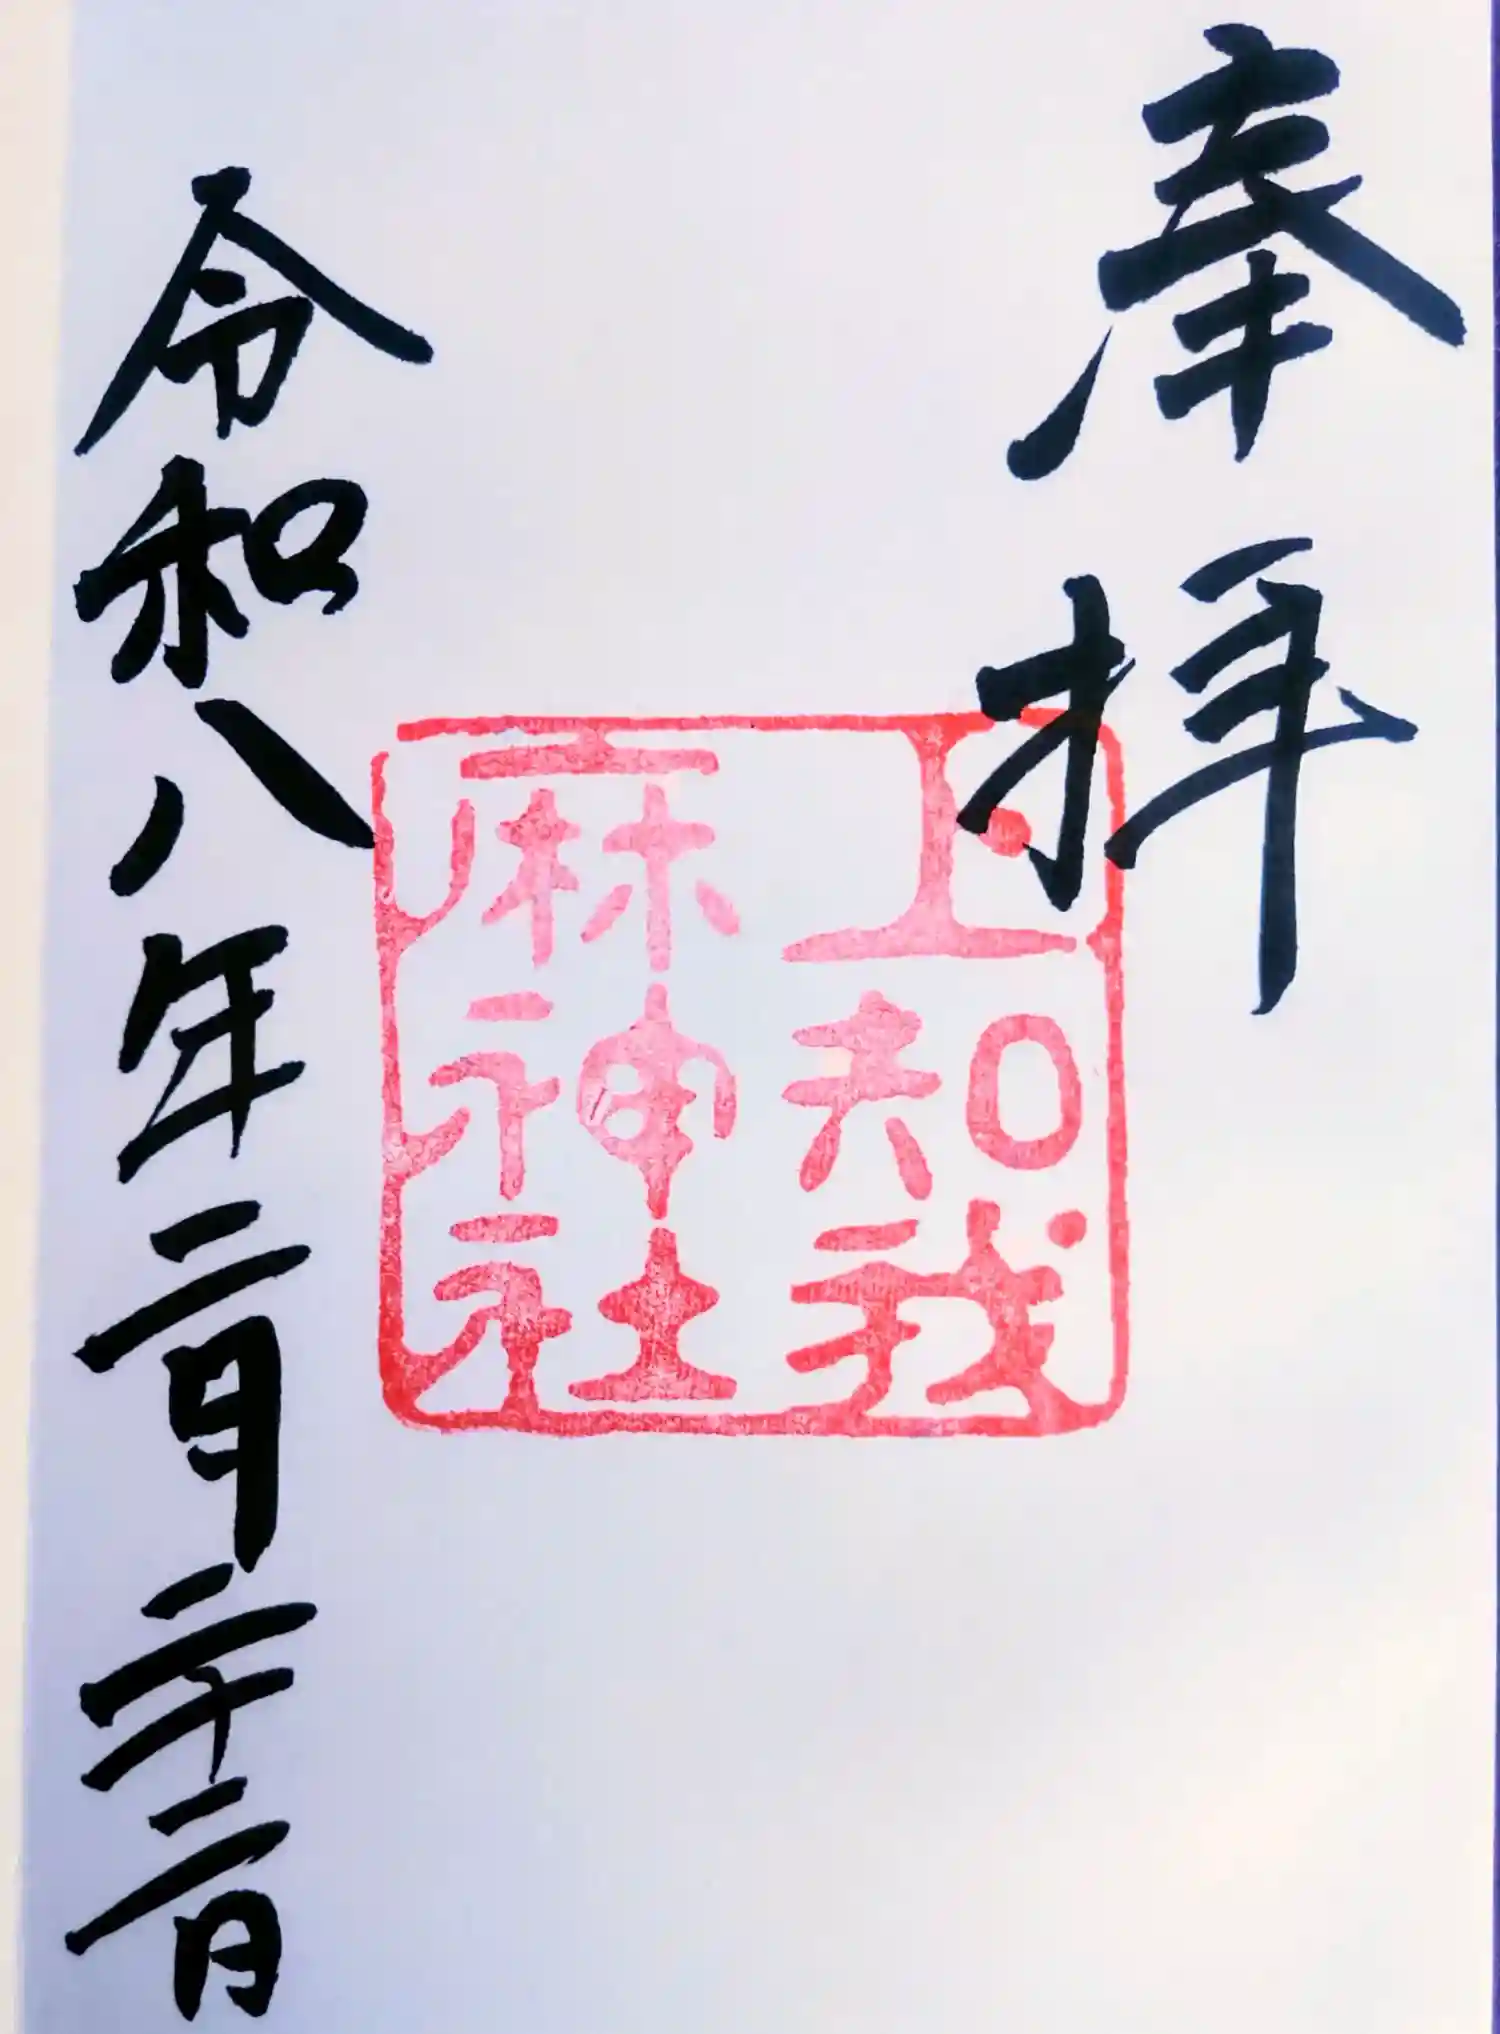 奉拝
上知我
麻神社
令和八年二月二十二日